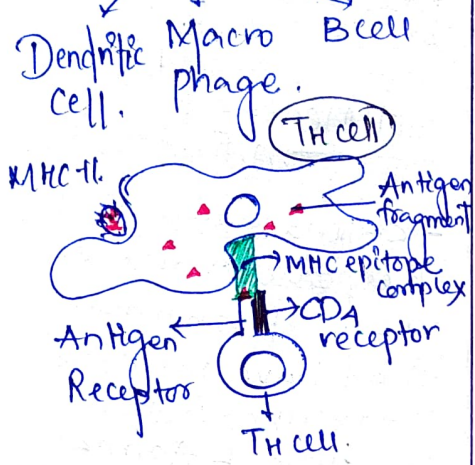 Dendritic
Cell.
Macro
phage.
B cell
TH cell
MHC-II.
Antigen
fragment
MHC epitope
complex
CD4
receptor
Antigen
Receptor
TH cell.